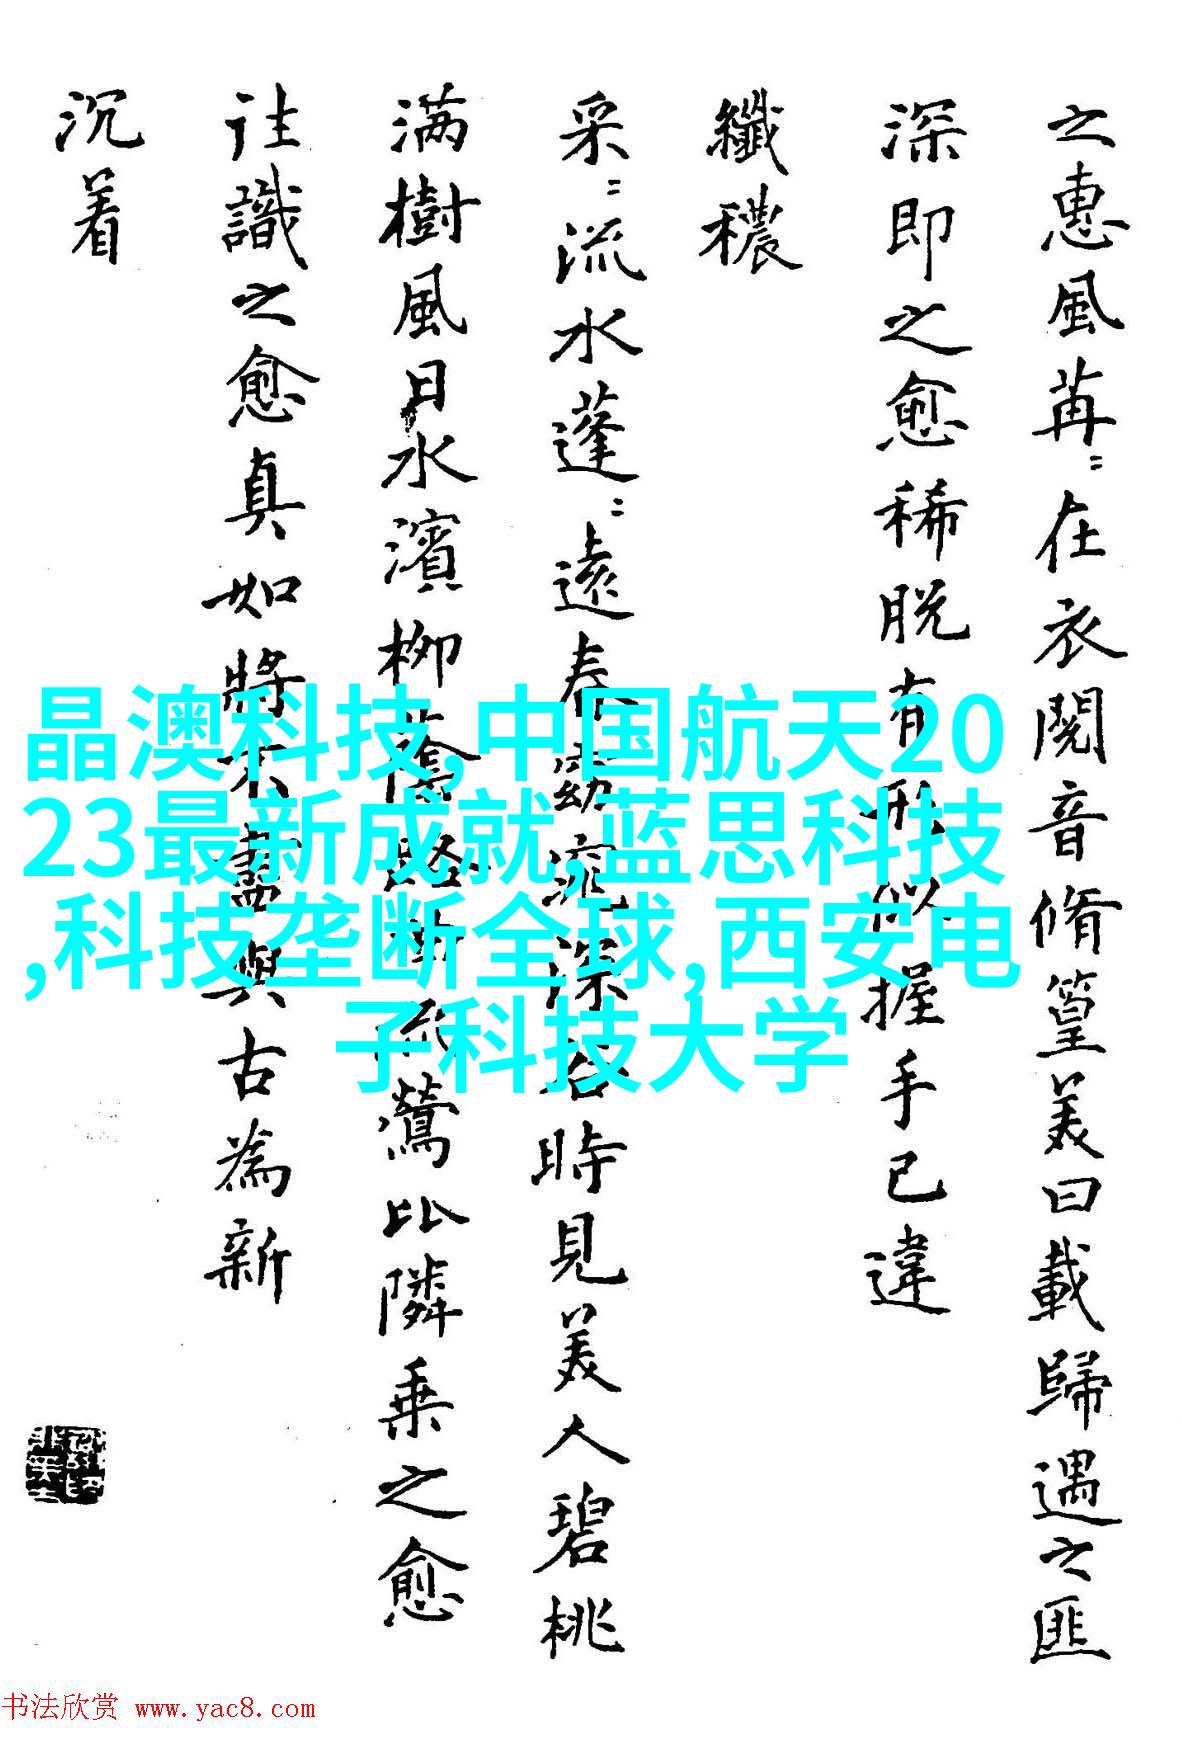 之惠風苒〻在衣閱音脩篁美曰載歸遇之匪
深即之愈稀脱有形似握手已違
纖穠
采〻流水蓬〻遠春窈窕深谷時見美人碧桃
满樹風日水濱柳蔭路曲流鶯比隣乗之愈
往識之愈真如將不盡與古為新
沉着
晶澳科技,中国航天20
23最新成就,蓝思科技
,科技垄断全球,西安电
子科技大学
书法欣赏 www.yac8.com